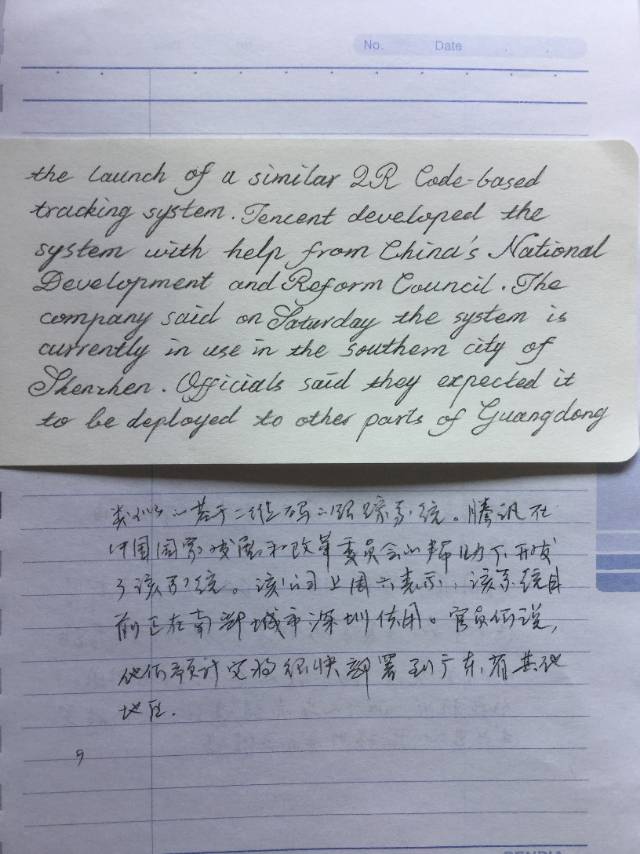 No. Date
the launch of a similar QR Code-based
tracking system. Tencent developed the
system with help from China's National
Development and Reform Council. The
company said on Saturday the system is
currently in use in the southern city of
Shenzhen. Officials said they expected it
to be deployed to other parts of Guangdong
类似的基于二维码的跟踪系统。腾讯在
中国国家发展和改革委员会的帮助下开发
了该系统。该公司上周六表示,该系统目
前正在南部城市深圳使用。官员们说,
他们预计它将很快部署到广东省其他
地区.
9